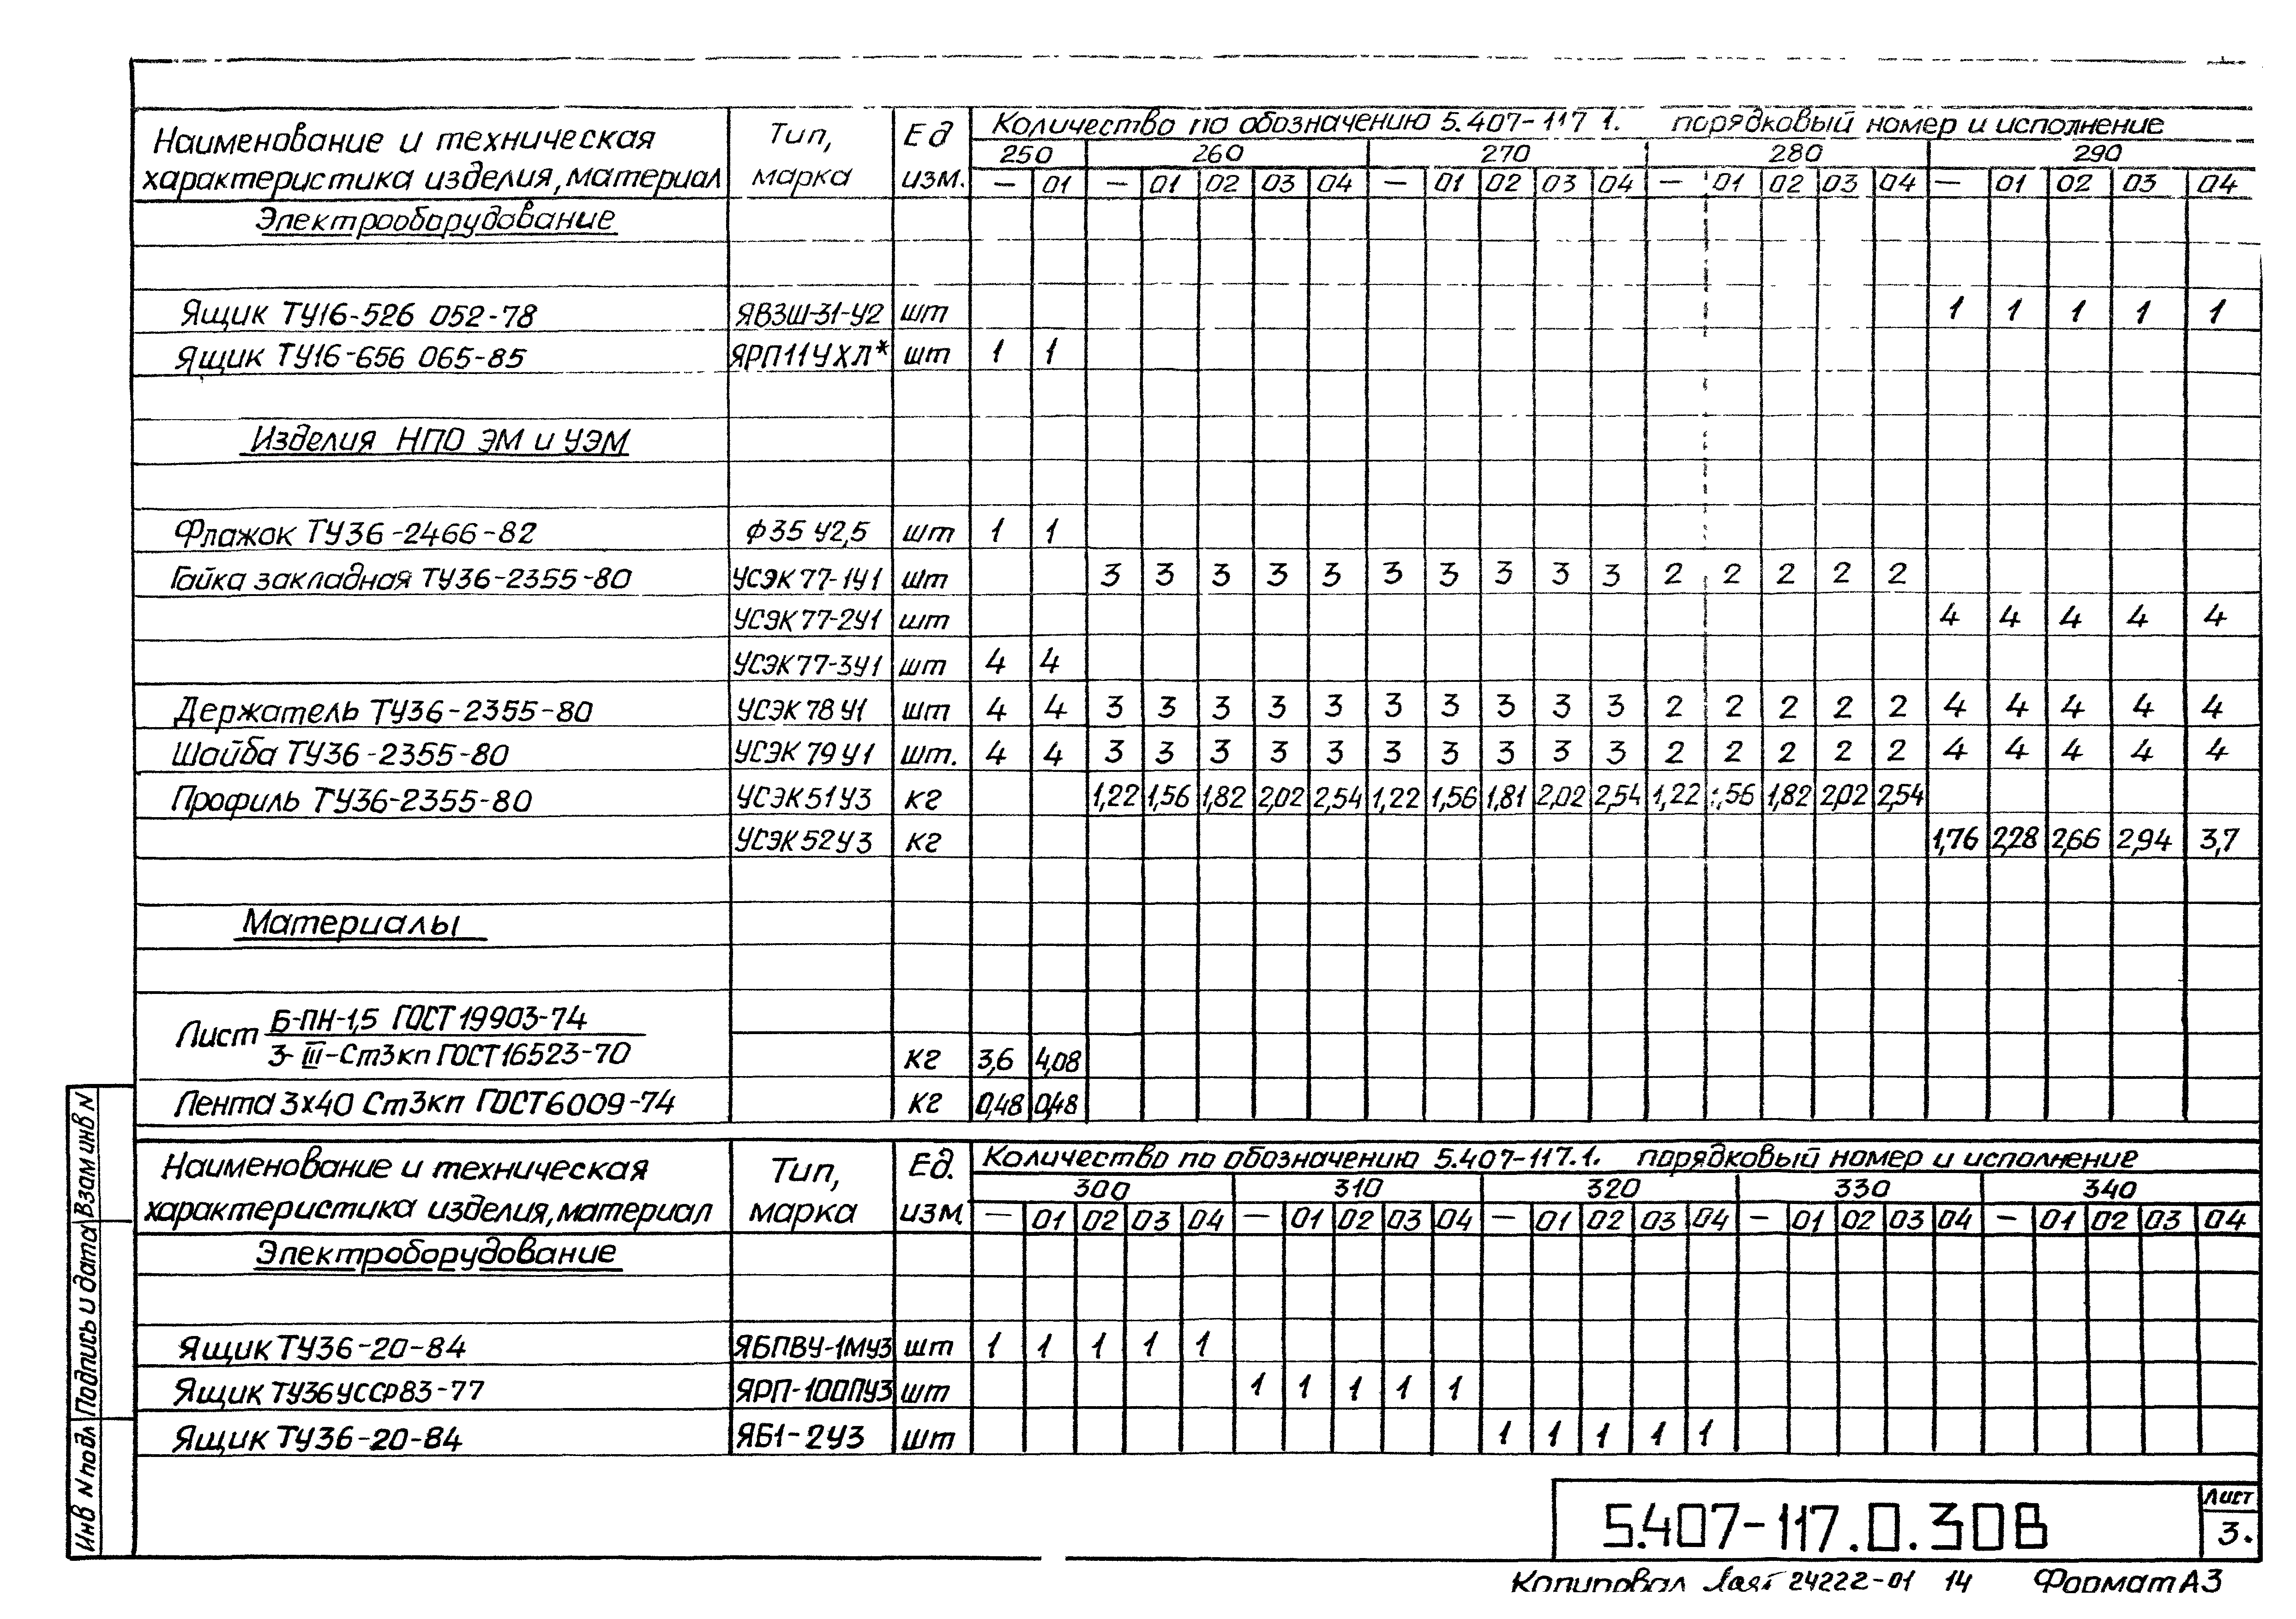 Наименование и техническая Тип, Ед Количество по обозначению 5.407-117 1. порядковый номер и исполнение
250 260 270 280 290
характеристика изделия, материал марка изм. — 01 — 01 02 03 04 — 01 02 03 04 — 01 02 03 04 — 01 02 03 04
Электрооборудование
Ящик ТУ16-526 052-78 ЯВЗШ-31-У2 шт 1 1 1 1 1
Ящик ТУ16-656 065-85 ЯРП11УХЛ* шт 1 1
Изделия НПО ЭМ и УЭМ
Флажок ТУ36-2466-82 Ф35 У2,5 шт 1 1
Гайка закладная ТУ36-2355-80 УСЭК 77-1У1 шт 3 3 3 3 3 3 3 3 3 3 2 2 2 2 2
УСЭК 77-2У1 шт 4 4 4 4 4
УСЭК 77-3У1 шт 4 4
Держатель ТУ36-2355-80 УСЭК 78 У1 шт 4 4 3 3 3 3 3 3 3 3 3 3 2 2 2 2 2 4 4 4 4 4
Шайба ТУ36-2355-80 УСЭК 79 У1 шт. 4 4 3 3 3 3 3 3 3 3 3 3 2 2 2 2 2 4 4 4 4 4
Профиль ТУ36-2355-80 УСЭК 51 У3 кг 1,22 1,56 1,82 2,02 2,54 1,22 1,56 1,81 2,02 2,54 1,22 1,56 1,82 2,02 2,54
УСЭК 52 У3 кг 1,76 2,28 2,66 2,94 3,7
Материалы
Лист Б-ПН-1,5 ГОСТ 19903-74
3-III-Ст3кп ГОСТ 16523-70 кг 3,6 4,08
Лента 3х40 Ст3кп ГОСТ 6009-74 кг 0,48 0,48
Наименование и техническая Тип, Ед. Количество по обозначению 5.407-117.1. порядковый номер и исполнение
300 310 320 330 340
характеристика изделия, материал марка изм — 01 02 03 04 — 01 02 03 04 — 01 02 03 04 — 01 02 03 04 — 01 02 03 04
Электроборудование
Ящик ТУ36-20-84 ЯБПВУ-1МУ3 шт 1 1 1 1 1
Ящик ТУ36УССР83-77 ЯРП-100ПУ3 шт 1 1 1 1 1
Ящик ТУ36-20-84 ЯБ1-2У3 шт 1 1 1 1 1
Инв N подл Подпись и дата Взам инв N
5.407-117.0.30В
Лист
3.
Копировал 24222-01 14 Формат А3